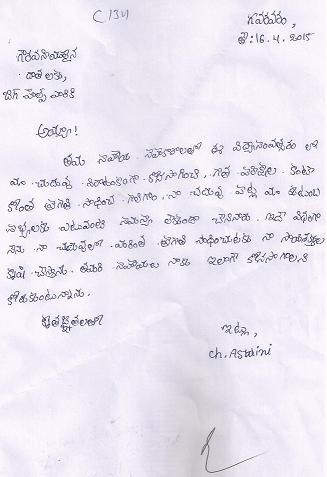 C 1341
గవరవరం,
తే: 16.4.2015
గౌరవనీయులైన
దాతలకు,
బిగ్ హెల్ప్ వారికి
అయ్యా!
తమ సహాయ సహకారాలతో ఈ విద్యాసంవత్సరం లో
మా చదువు నిరాటంకంగా కొనసాగించి, గత పరీక్షల కంటే
కొంత ప్రగతి సాధించ గలిగాను, నా చదువు పట్ల మా కుటుంబ
సభ్యులకు ఎటువంటి సమస్య లేకుండా చేసినారు. ఇదే విధంగా
నేను నా చదువులో మరింత ప్రగతి సాధించుటకు నా
కృషి చేస్తాను. తమరి సహాయం నాకు ఇలాగే కొనసాగాలని
కోరుకుంటున్నాను.
కృతజ్ఞతలతో
ఇట్లు,
ch. Aswini